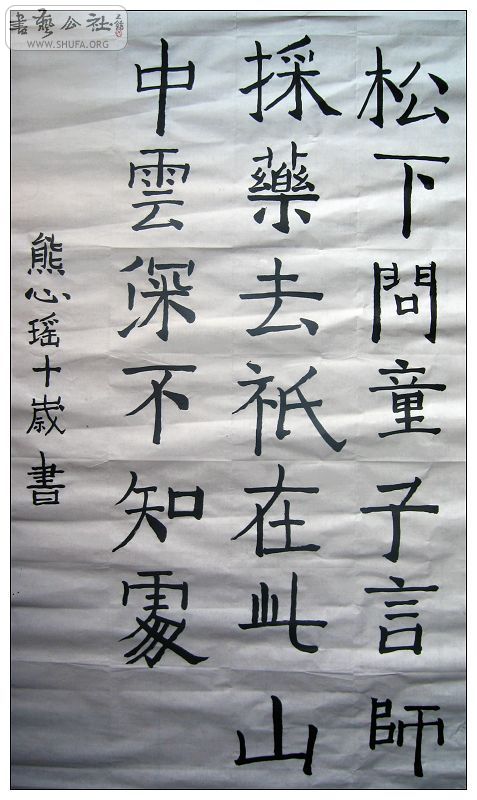 松下問童子言師
採藥去祇在此山
中雲深不知處
熊心瑶十歲書
書藝公社
WWW.SHUFA.ORG